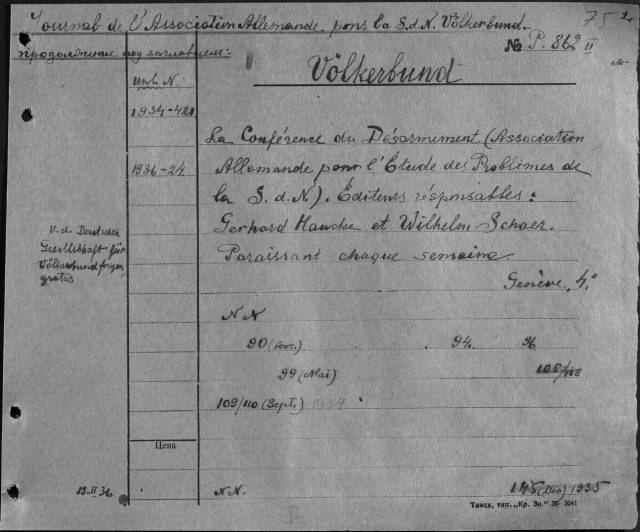 Journal de l'Association Allemande pour la S.d.N. Völkerbund-
продолжение под заглавием:
75 2.
№ P. 862 II
Völkerbund
Инв. N.
1934-421
1936-24
La Conférence du Désarmement (Association
Allemande pour l'Étude des Problèmes de
la S.d.N). Éditeurs résponsables:
Gerhard Haucke et Wilhelm Schaer.
Paraissant chaque semaine
Genève, 4.°
V. d. Deutschen
Gesellschaft für
Völkerbundfragen,
gratis
N N
90 (Févr.) 94. 96
99 (Mai) 105/108
109/110 (Sept.) 1934
Цена
13-II 36
N.N. (Dec) 1935
Томск, тип. „Кр. Зн." 36- 3041